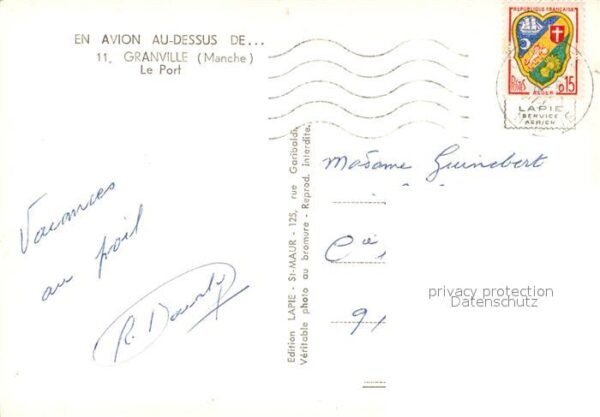 EN AVION AU-DESSUS DE...
11, GRANVILLE (Manche)
Le Port
REPUBLIQUE FRANÇAISE
POSTES
0,15
ALGER
LAPIE
SERVICE
AERIEN
Edition LAPIE - St-MAUR - 125, rue Garibaldi
Véritable photo au bromure - Reprod. interdite.
Vacances
au poil
R.
Madame Guinebert
Cie
91
privacy protection
Datenschutz